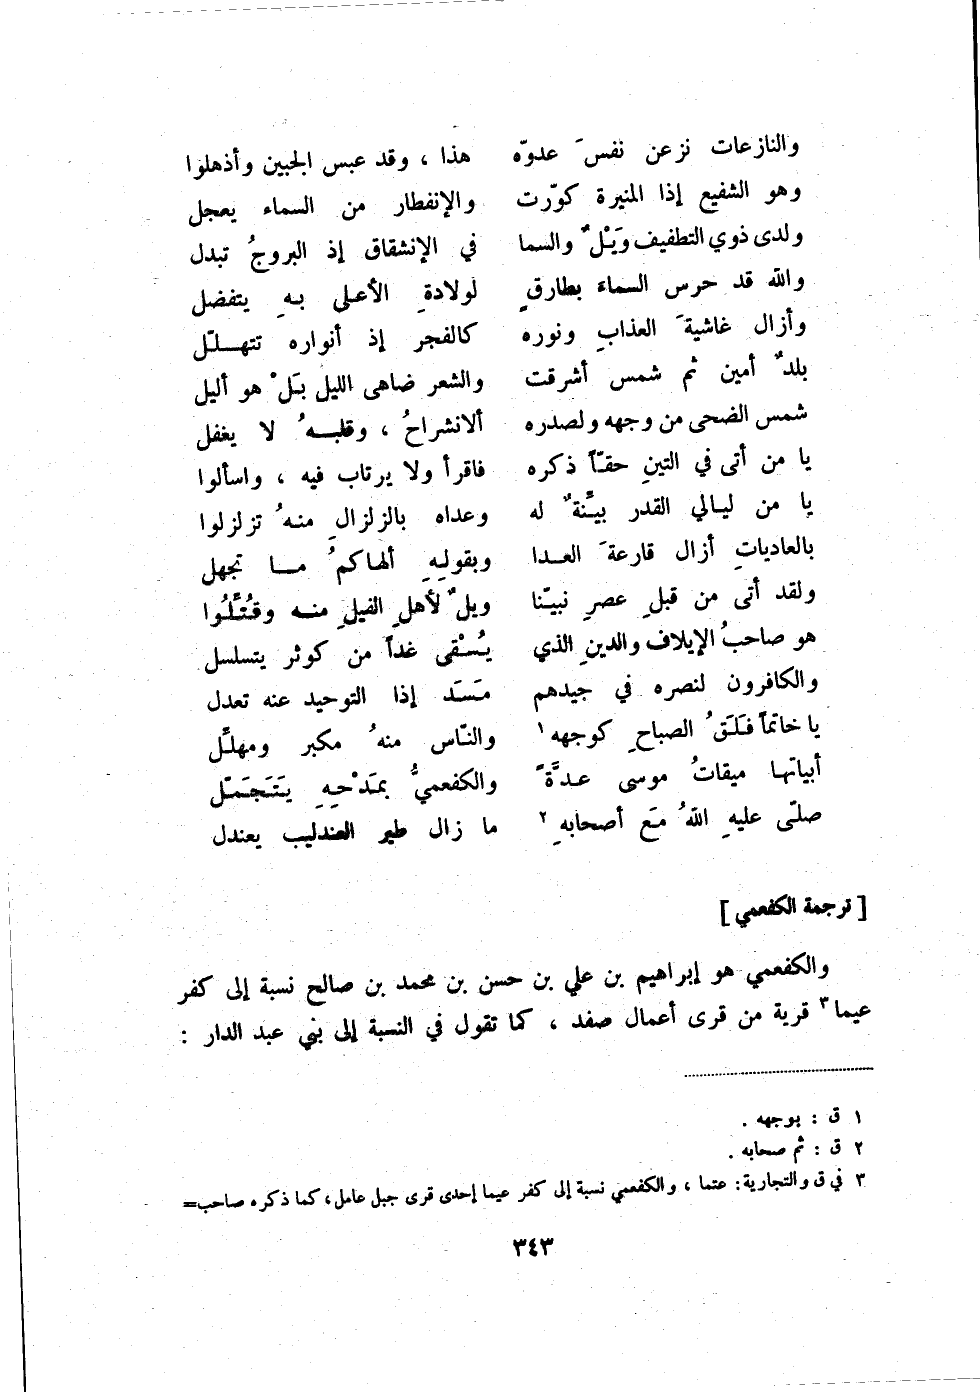 والنازعات نزعن نفسَ عدوّه هذا ، وقد عبس الجبين وأذهلوا
وهو الشفيع إذا المنيرة كوّرت والإنفطار من السماء يعجل
ولدى ذوي التطفيف وَيْلٌ والسما في الإنشقاق إذ البروجُ تبدل
والله قد حرس السماءَ بطارقٍ لولادةِ الأعلى بهِ يتفضل
وأزال غاشيةَ العذابِ ونوره كالفجر إذ أنواره تتهـــلّل
بلدٌ أمين ثم شمس أشرقت والشعر ضاهى الليل بَلْ هو أليل
شمس الضحى من وجهه ولصدره ألانشراحُ ، وقلبــهُ لا يغفل
يا من أتى في التينِ حقّاً ذكره فاقرأ ولا يرتاب فيه ، واسألوا
يا من ليالي القدر بيِّنةٌ له وعداه بالزلزالِ منهُ تزلزلوا
بالعادياتِ أزال قارعةَ العــدا وبقولِهِ ألهاكمُ مــا تجهل
ولقد أتى من قبلِ عصرِ نبيّنا ويلٌ لأهلِ الفيلِ منــه وقُتِّلُوا
هو صاحبُ الإيلاف والدينِ الذي يُسْقى غداً من كوثر يتسلسل
والكافرون لنصره في جيدهم مَسَد إذا التوحيد عنه تعدل
يا خاتماً فَلَقُ الصباحِ كوجهه١ والنّاس منهُ مكبر ومهلِّل
أبياتها ميقاتُ موسى عدَّةً والكفعميُّ بمَدْحِهِ يتَجَمّل
صلّى عليهِ اللهُ مَعَ أصحابهِ٢ ما زال طير العندليب يعندل
[ ترجمة الكفعمي ]
والكفعمي هو إبراهيم بن علي بن حسن بن محمد بن صالح نسبة إلى كفر
عيما٣ قرية من قرى أعمال صفد ، كما تقول في النسبة إلى بني عبد الدار :
١ ق : بوجهه .
٢ ق : ثم صحابه .
٣ في ق والتجارية : عتما ، والكفعمي نسبة إلى كفر عيما إحدى قرى جبل عامل ، كما ذكره صاحب=
٣٤٣